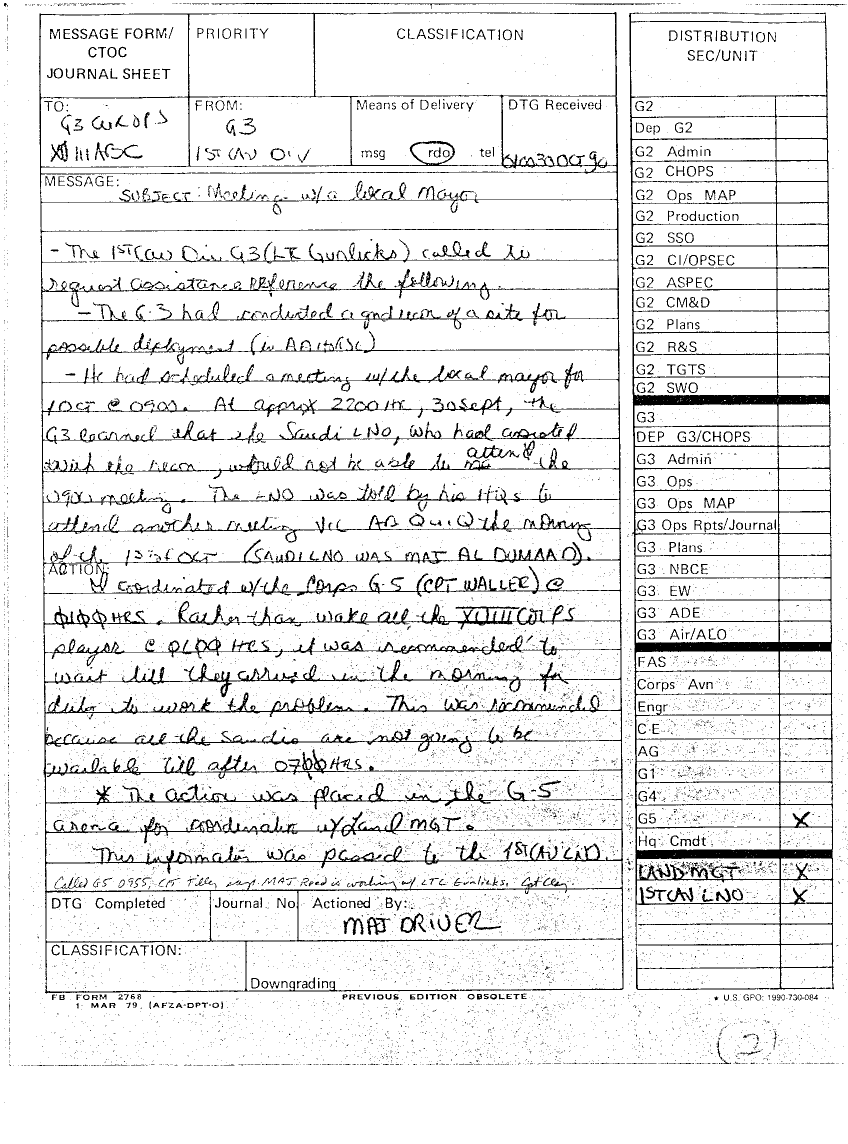 MESSAGE FORM/
CTOC
JOURNAL SHEET
PRIORITY
CLASSIFICATION
TO:
G3 CUR OPS
XVIII ABC
FROM:
G3
1ST CAV DIV
Means of Delivery
msg rdo tel
DTG Received
OCT 90
MESSAGE:
SUBJECT: Meeting w/a local Mayor
- The 1ST Cav Div G3 (LTC Gunlicks) called to
request assistance reference the following.
- The G-3 had conducted a gnd recon of a site for
possible deployment (in
- He had scheduled a meeting w/the local mayor for
1 OCT @ 0900. At approx 2200 Hr, 30 Sept, the
G3 learned that the Saudi LNO, who had assisted
with the recon, would not be able to attend the
0900 meeting. The LNO was told by his HQs to
attend another meeting VIC the morning
of the 1st of OCT (SAUDI LNO WAS MAJ AL DUMAAD).
ACTION:
Coordinated w/the Corps G-5 (CPT WALLER) @
0100 HRS. Rather than wake all the XVIII CORPS
player @ 0100 HRS, it was recommended to
wait till they arrived in the morning for
duty to work the problem. This was recommended
because all the Saudis are not going to be
available till after 0700 HRS.
* The action was placed in the G-5
arena for coordination w/Land MGT.
This information was passed to the 1ST CAV LNO.
Called G5 0955, CPT says MAJ Reed is working w/ LTC Gunlicks. Cpt
DTG Completed
Journal No.
Actioned By:
MAJ DRIVER
CLASSIFICATION:
Downgrading
FB FORM 2768
1 MAR 79, (AFZA-DPT-O)
PREVIOUS EDITION OBSOLETE
DISTRIBUTION
SEC/UNIT
G2
Dep G2
G2 Admin
G2 CHOPS
G2 Ops MAP
G2 Production
G2 SSO
G2 CI/OPSEC
G2 ASPEC
G2 CM&D
G2 Plans
G2 R&S
G2 TGTS
G2 SWO
G3
DEP G3/CHOPS
G3 Admin
G3 Ops
G3 Ops MAP
G3 Ops Rpts/Journal
G3 Plans
G3 NBCE
G3 EW
G3 ADE
G3 Air/ALO
FAS
Corps Avn
Engr
C-E
AG
G1
G4
G5 X
Hq Cmdt
LAND MGT X
1ST CAV LNO X
* U.S. GPO: 1990-730-084
(2)